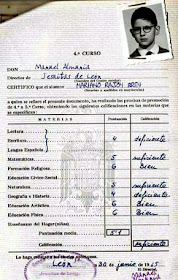 4.º CURSO
DON Manuel Almansa
Director de Jesuitas de León
CERTIFICO que el alumno MARIANO RAJOY BREY
a quien se refiere el presente documento, ha realizado las pruebas de promoción
de 4.º a 5.º Curso, obteniendo las siguientes calificaciones en las materias que
se especifican:
MATERIAS Puntuación Calificación
Lectura
Escritura 4 deficiente
Lengua Española
Matemáticas 5 suficiente
Formación Religiosa 6 Bien
Educación Cívico-Social
Naturaleza 5 suficiente
Geografía e Historia 4 deficiente
Educación Artística 6 Bien
Educación Física 6 Bien
Enseñanzas del Hogar (niñas)
Puntuación media 5'1
Calificación suficiente
León, 20 de junio de 1965
El Director,